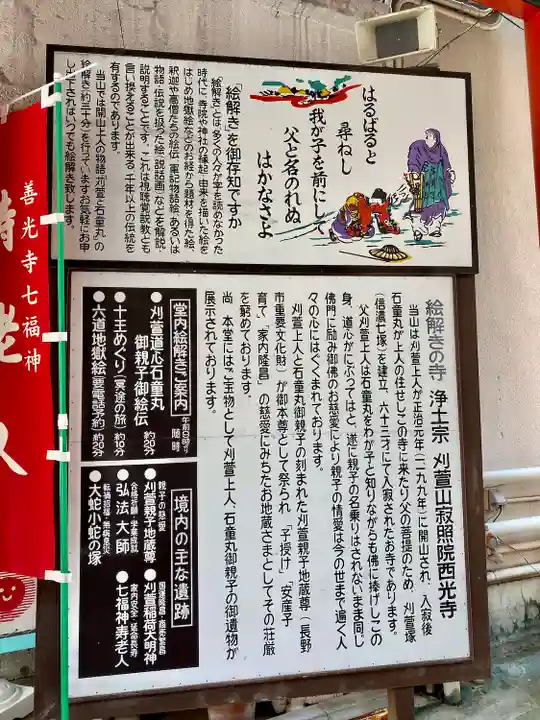 はるばると
尋ねし
我が子を前にして
父と名のれぬ
はかなさよ
「絵解き」を御存知ですか
「絵解き」とは、多くの人々が字を読めなかった
時代に、寺院や神社の縁起、由来を描いた絵を
はじめ地獄絵などのお経から題材を得た絵、
釈迦や高僧たちの絵伝、軍記物語絵、あるいは
物語・伝説を扱った絵(説話画)などを解説・
説明することです。これは視聴覚説教とも
言い換えることが出来る、千年以上の伝統を
有するのであります。
当山では開山上人の物語「刈萱と石童丸」の
絵解き(約二十分)を行っています。お気軽にお申
し出下さればいつでも絵解き致します。
絵解きの寺 浄土宗 刈萱山寂照院西光寺
当山は刈萱上人が正治元年(一一九九年)に開山され、入寂後
石童丸が上人の住せしこの寺に来たり父の菩提のため、刈萱塚
(信濃七塚)を建立、六十三才にて入寂されたお寺であります。
父刈萱上人は石童丸をわが子と知りながらも佛に捧げしこの
身、道心がにぶってはと、遂に親子の名乗りはされないまま同じ
佛門に励み御佛のお慈愛により親子の情愛は今の世まで遍く人
々の心にはぐくまれております。
刈萱上人と石童丸御親子の刻まれた刈萱親子地蔵尊(長野
市重要文化財)が御本尊として祭られ 「子授け」「安産子
育て」「家内隆昌」の慈愛にみちたお地蔵さまとしてその荘厳
を窮めております。
尚、本堂にはご宝物として刈萱上人、石童丸御親子の御遺物が
展示されております。
堂内絵解きご案内
午前9時より
随時
●刈萱道心石童丸
御親子御絵伝
約20分
●十王めぐり(冥途の旅)約10分
●六道地獄絵(要電話予約)約20分
境内の主な遺跡
親子の慈愛
●刈萱親子地蔵尊
合格祈願・学業成就
●弘法大師
転禍招福・無病息災
●大蛇小蛇の塚
国運隆昌・商売繁昌
●刈萱稲荷大明神
家内安全・延命長寿
●七福神寿老人
善光寺七福神
寿老人